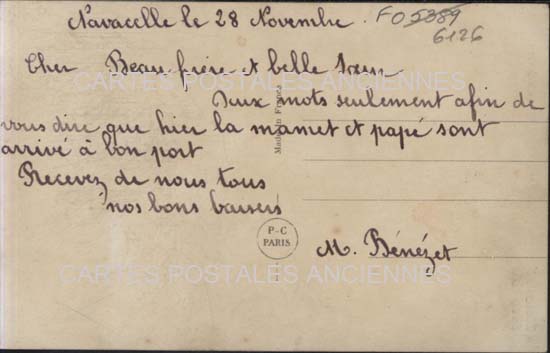 Navacelle le 28 Novembre.
FO 5389
6126
Cher Beau frère et belle Sœur
CARTES POSTALES ANCIENNES
Deux mots seulement afin de
vous dire que hier la mamet et papé sont
arrivé à bon port
Recevez de nous tous
nos bons baisers
Made in France
P-C
PARIS
M. Bénézet
CARTES POSTALES ANCIENNES